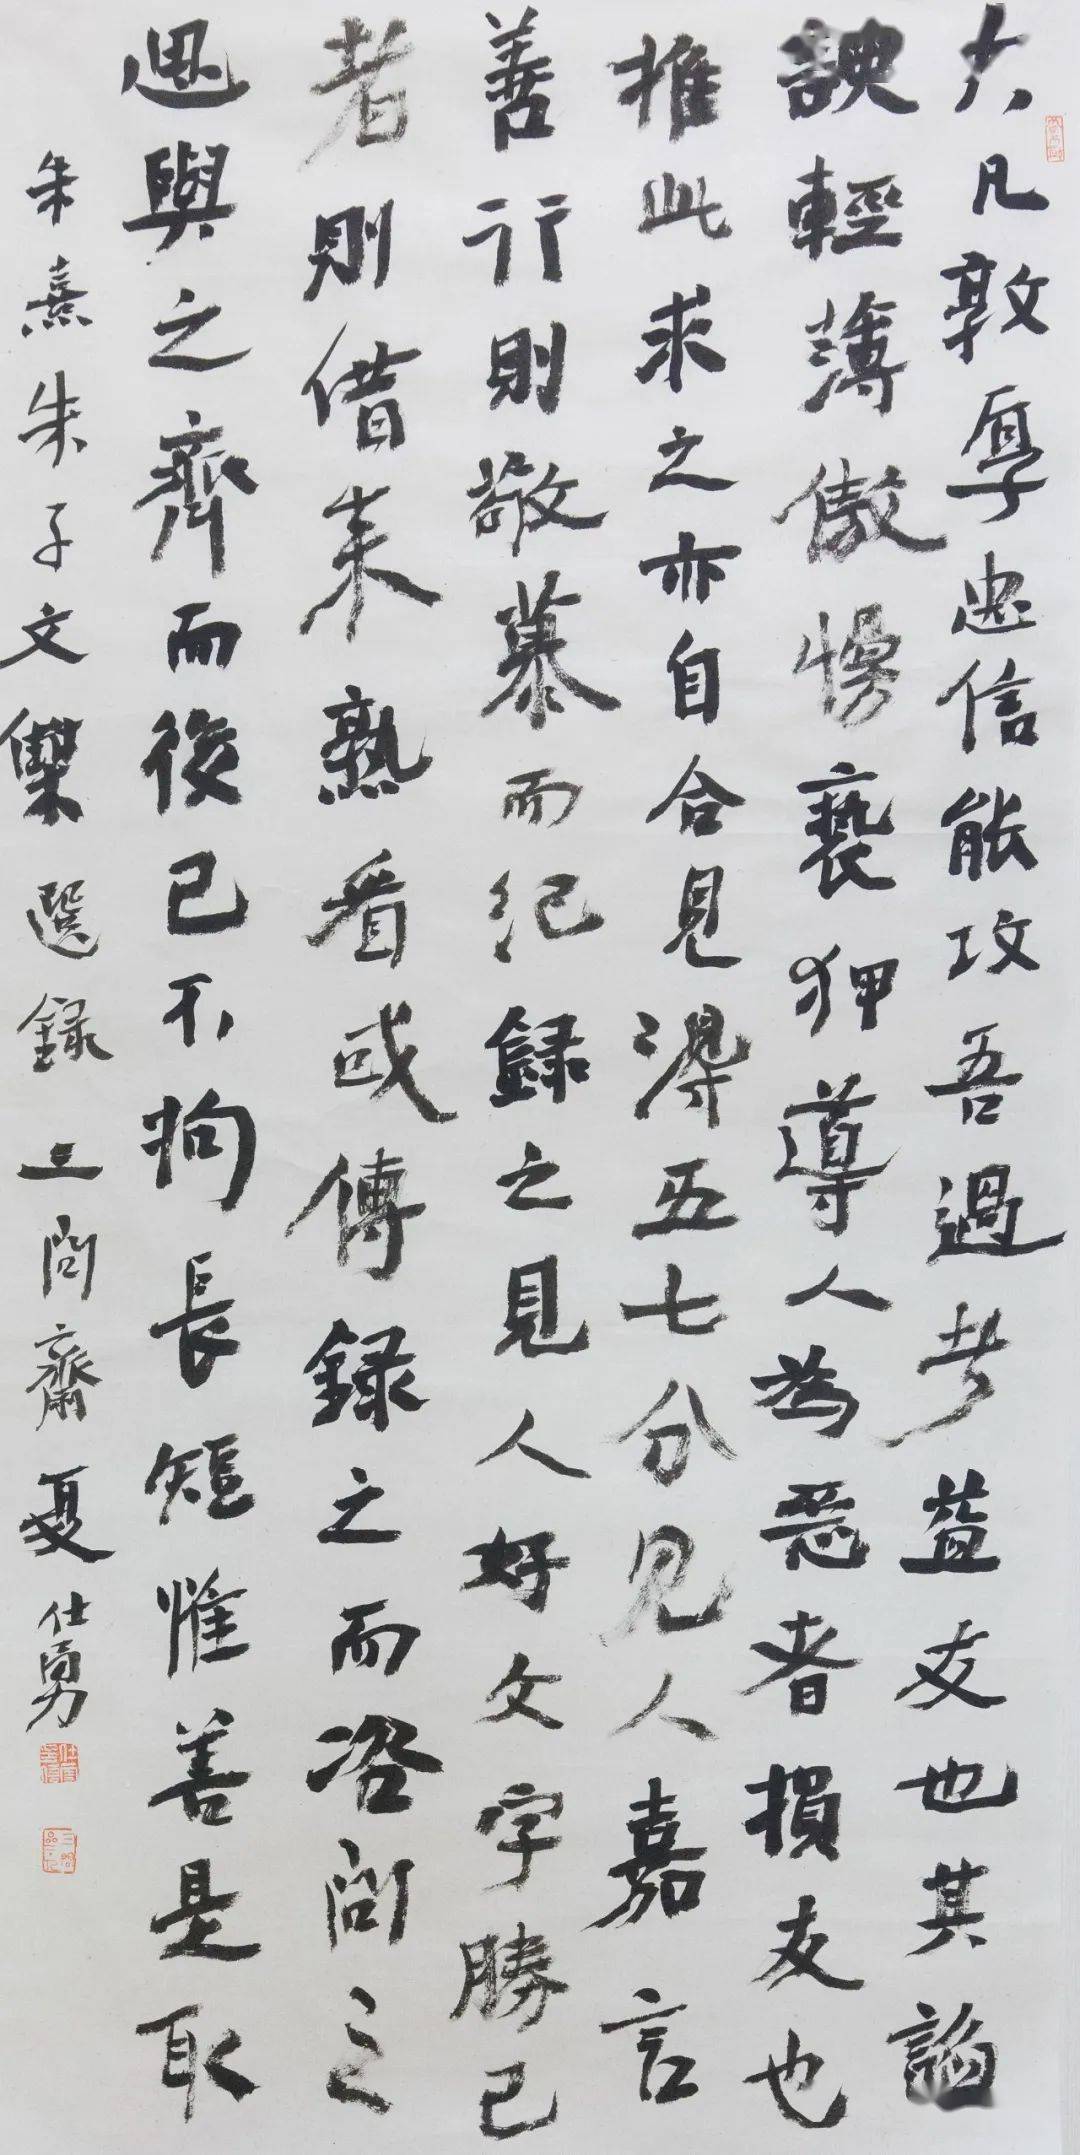 大凡敦厚忠信能攻吾過者益友也其諂
諛輕薄傲慢褻狎導人為惡者損友也
推此求之亦自合見得五七分見人嘉言
善行則敬慕而紀録之見人好文字勝己
者則借来熟看或傳録之而咨問之
思與之齊而後已不拘長短惟善是取
朱熹朱子文集選録三問齋夏仕勇